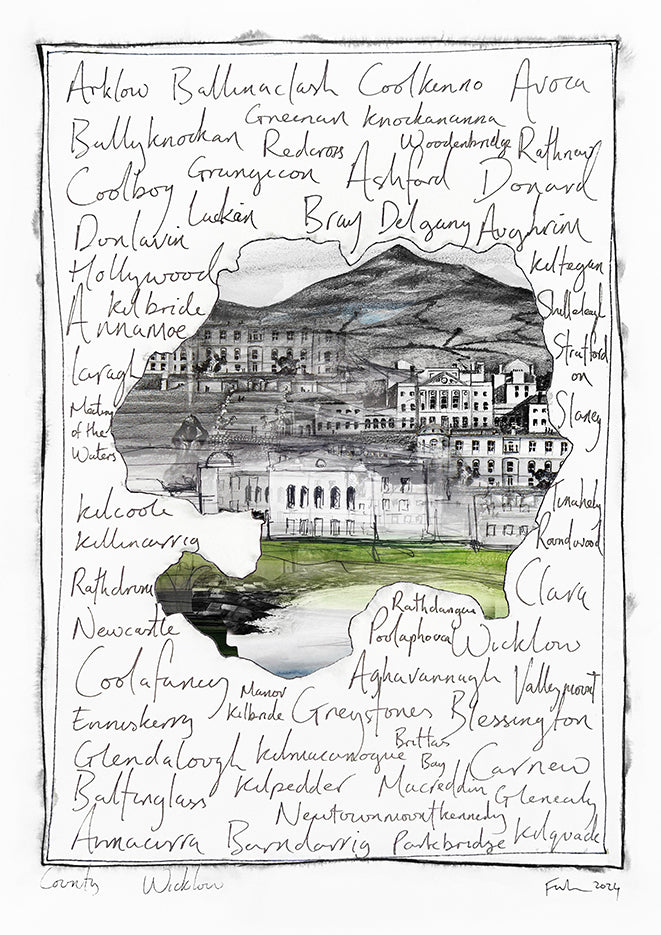 Arklow Ballinaclash Coolkenno Avoca
Greenan Knockananna
Ballyknockan Redcross Woodenbridge Rathnew
Coolboy Grangecon Ashford Donard
Donlavin Luckan Bray Delgany Aughrim
Hollywood Kiltegan
Kilbride Shillelagh
Annamoe Stratford
on
Laragh Slaney
Meeting
of the
Waters
Kilcoole Tinahely
Killincarrig Roundwood
Rathdrum Clara
Rathdangan
Newcastle Poolaphoca Wicklow
Coolafancy Aghavannagh Valleymount
Manor
Kilbride
Enniskerry Greystones Blessington
Glendalough Kilmacanogue Brittas
Bay
Carnew
Baltinglass Kilpedder Macreddin Glenealy
Newtownmountkennedy
Annacurra Barndarrig Parkbridge Kilquade
County Wicklow 2024